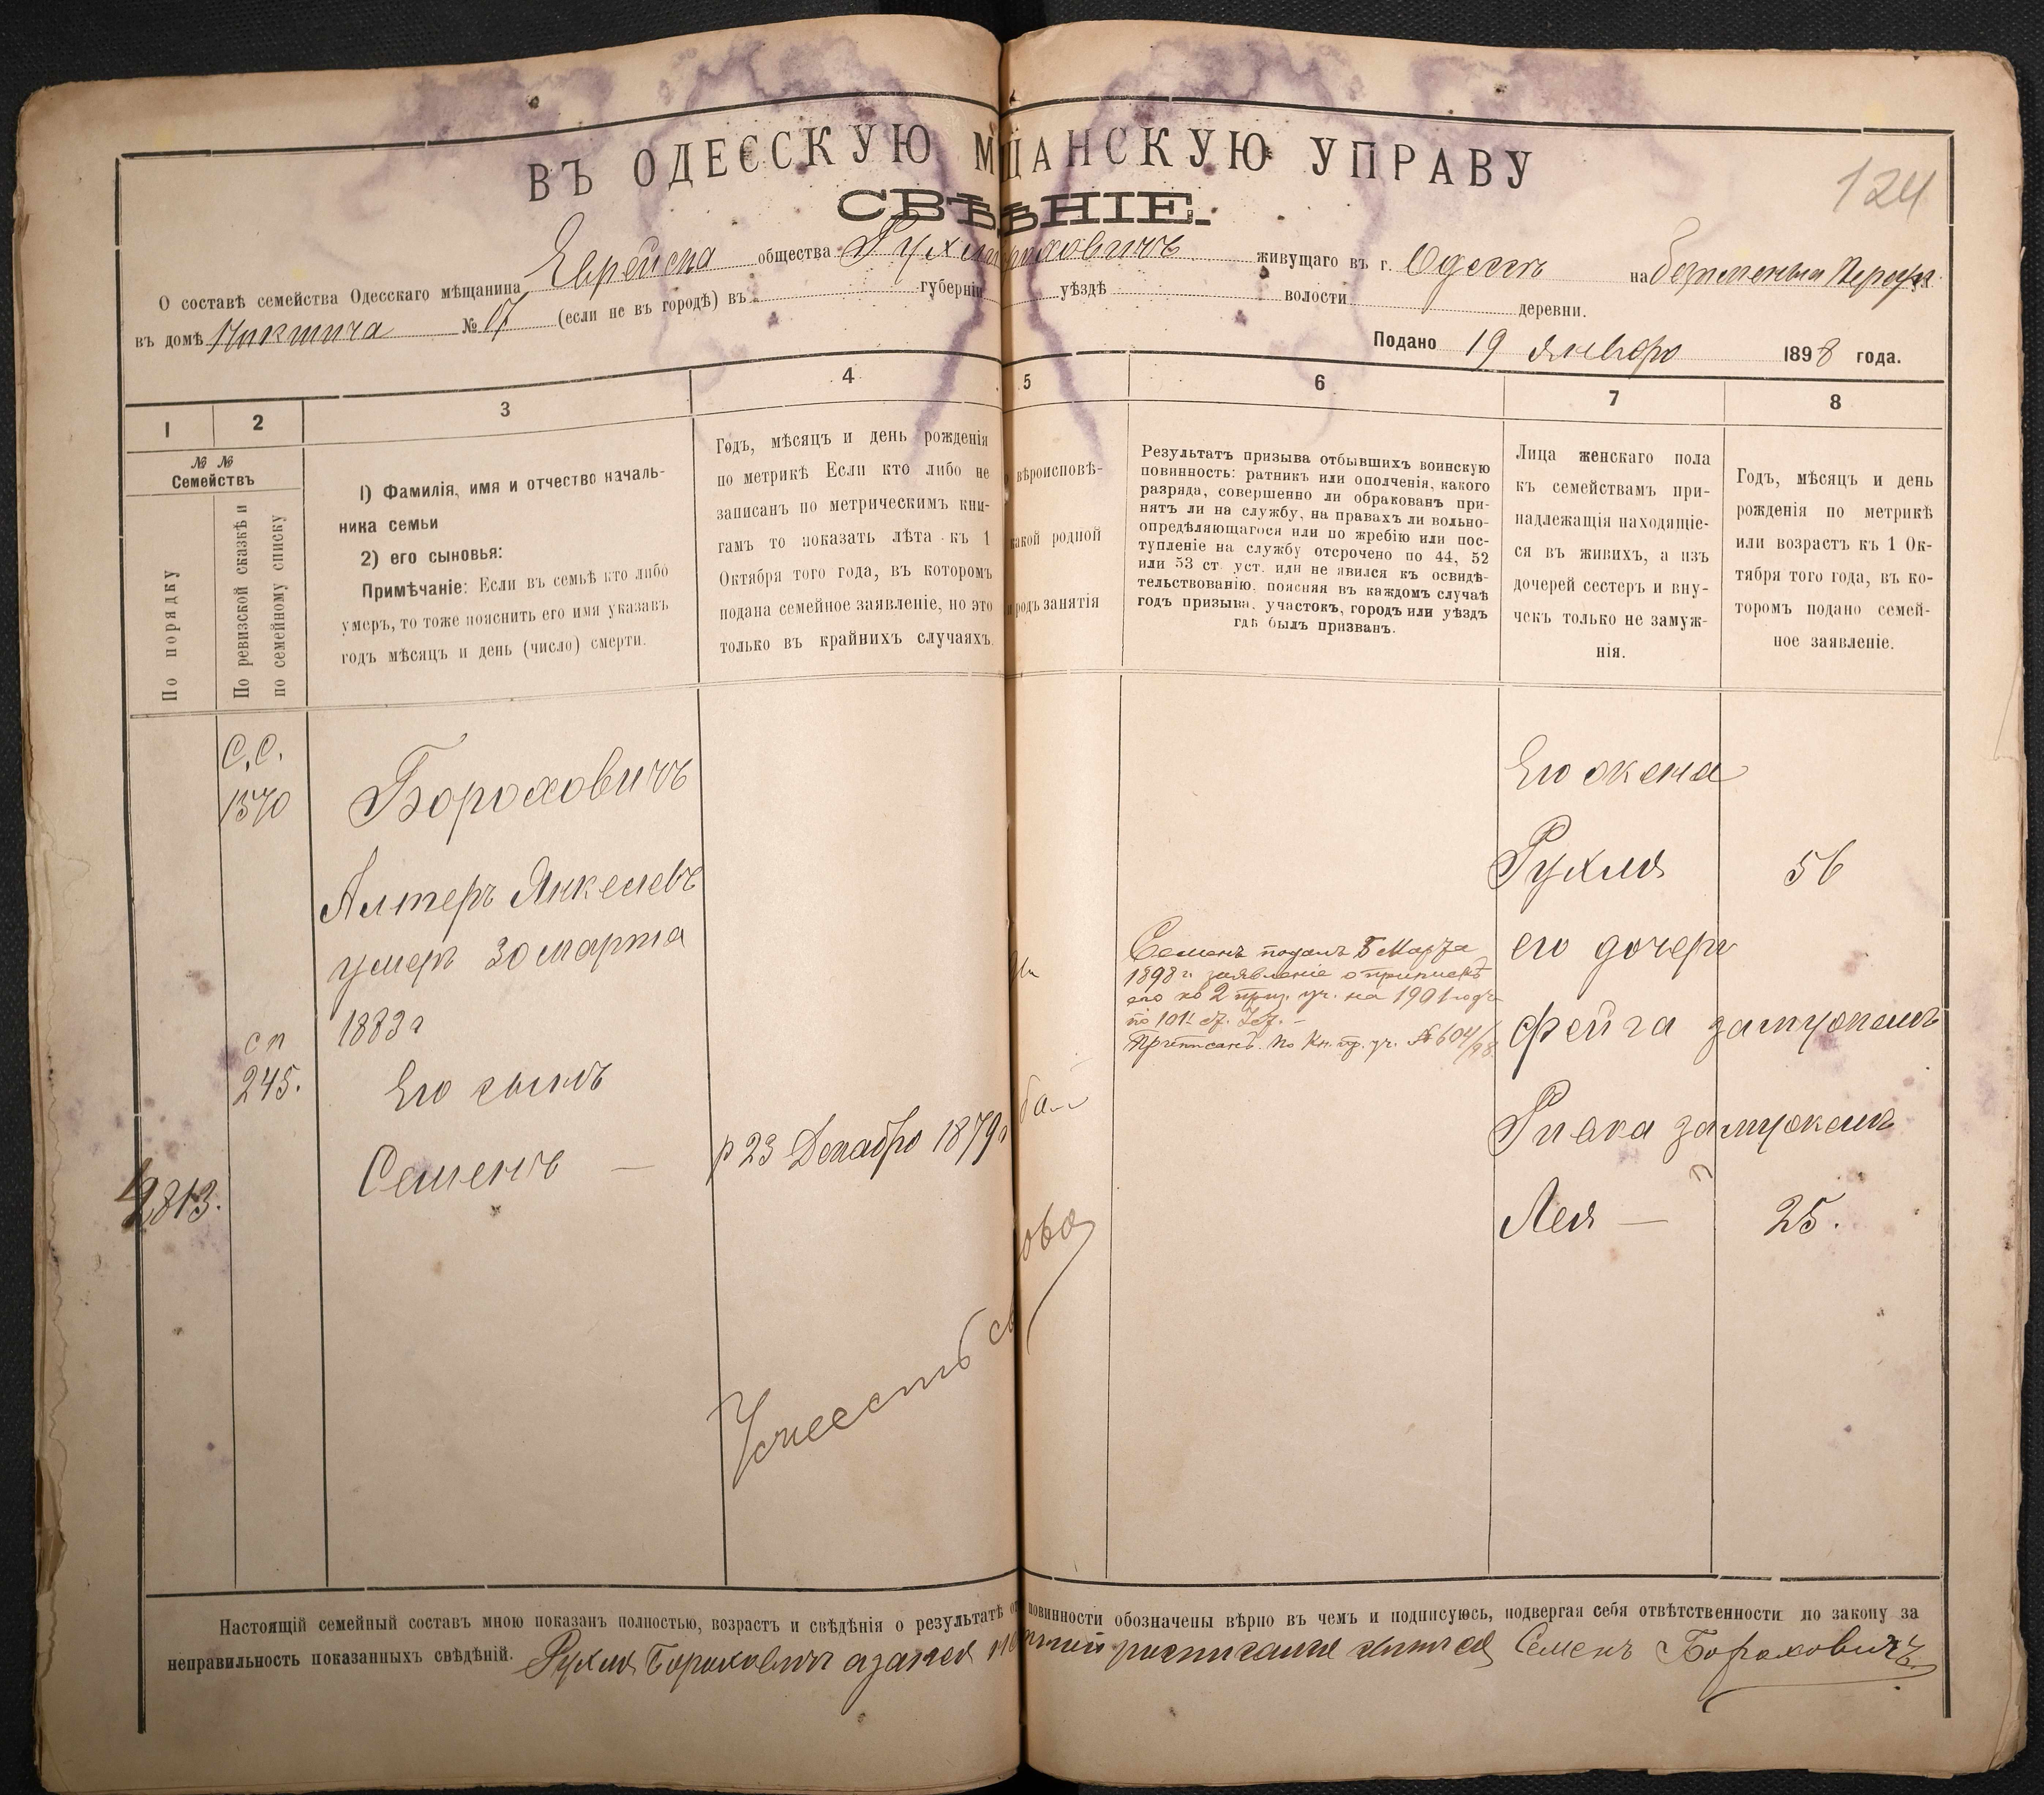 124
ВЪ ОДЕССКУЮ МѢЩАНСКУЮ УПРАВУ
СВѢДѢНІЕ.
О составѣ семейства Одесскаго мѣщанина Еврейска общества Рухли Бороховичъ живущаго въ г. Одессѣ на
въ домѣ Никитича № 17 (если не въ городѣ) въ губерніи уѣздѣ волости деревни.
Подано 19 Января 1898 года.
1 2 3 4 5 6 7 8
№ № Семействъ
По порядку
По ревизской сказкѣ и
по семейному списку
1) Фамилія, имя и отчество началь-
ника семьи
2) его сыновья:
Примѣчаніе: Если въ семьѣ кто либо
умеръ, то тоже пояснить его имя указавъ
годъ мѣсяцъ и день (число) смерти.
Годъ, мѣсяцъ и день рожденія
по метрикѣ Если кто либо не
записанъ по метрическимъ кни-
гамъ то показать лѣта къ 1
Октября того года, въ которомъ
подана семейное заявленіе, но это
только въ крайнихъ случаяхъ.
вѣроисповѣ-
какой родной
родъ занятія
Результатъ призыва отбывшихъ воинскую
повинность: ратникъ или ополченія, какого
разряда, совершенно ли обракованъ при-
нятъ ли на службу, на правахъ ли вольно-
опредѣляющагося или по жребію или пос-
тупленіе на службу отсрочено по 44, 52
или 53 ст. уст. или не явился къ освидѣ-
тельствованію, поясняя въ каждомъ случаѣ
годъ призыва, участокъ, городъ или уѣздъ
гдѣ былъ призванъ.
Лица женскаго пола
къ семействамъ при-
надлежащія находящіе-
ся въ живихъ, а изъ
дочерей сестеръ и вну-
чекъ только не замуж-
нія.
Годъ, мѣсяцъ и день
рожденія по метрикѣ
или возрастъ къ 1 Ок-
тября того года, въ ко-
торомъ подано семей-
ное заявленіе.
С.С.
1570
Бороховичъ
Алтеръ Янкелевъ
умеръ 30 марта
1883 г
с п
245.
Его сынъ
Семенъ —
р 23 Декабря 1879 г
2813.
Семенъ подалъ 5 Марта
1898 г. заявленіе о припискѣ
его ко 2 приз. уч. на 1901 годъ
по 101 ст.
Приписанъ. по Кн. пр. уч. № 604/98.
Его жена
Рухля 56
его дочери
Фейга замужемъ
Ривка замужемъ
Лея — 25.
Настоящій семейный составъ мною показанъ полностью, возрастъ и свѣдѣнія о результатѣ повинности обозначены вѣрно въ чемъ и подписуюсь, подвергая себя отвѣтственности по закону за
неправильность показанныхъ свѣдѣній. Рухля Бороховичъ а за нея Семенъ Бороховичъ